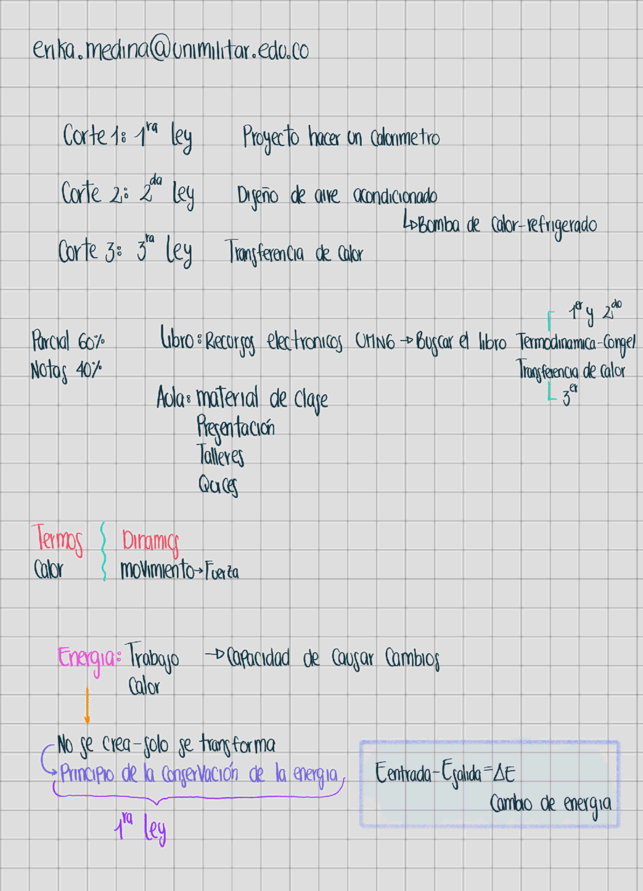 erika.medina@unimilitar.edu.co
Corte 1: 1ra ley Proyecto hacer un calorimetro
Corte 2: 2da ley Diseño de aire acondicionado
↳Bomba de calor-refrigerado
Corte 3: 3ra ley Transferencia de calor
1er y 2do
Parcial 60% Libro: Recursos electronicos UMNG → Buscar el libro Termodinamica-Cengel
Notas 40% Transferencia de calor
3er
Aula: material de clase
Presentación
Talleres
Quices
Termos Dinamics
Calor movimiento→Fuerza
Energia: Trabajo → Capacidad de causar cambios
Calor
No se crea-solo se transforma
Principio de la conservación de la energia
1ra ley
Eentrada-Esalida=ΔE
Cambio de energia